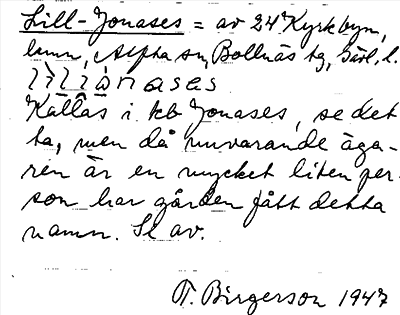 Lill-Jonases = av 24 Kyrkbyn,
hmn, Alfta sn, Bollnäs tg, Gävl. l.
Kallas i kb Jonases, se det-
ta, men då nuvarande äga-
ren är en mycket liten per-
son har gården fått detta
namn. Se av.
T. Birgerson 1947